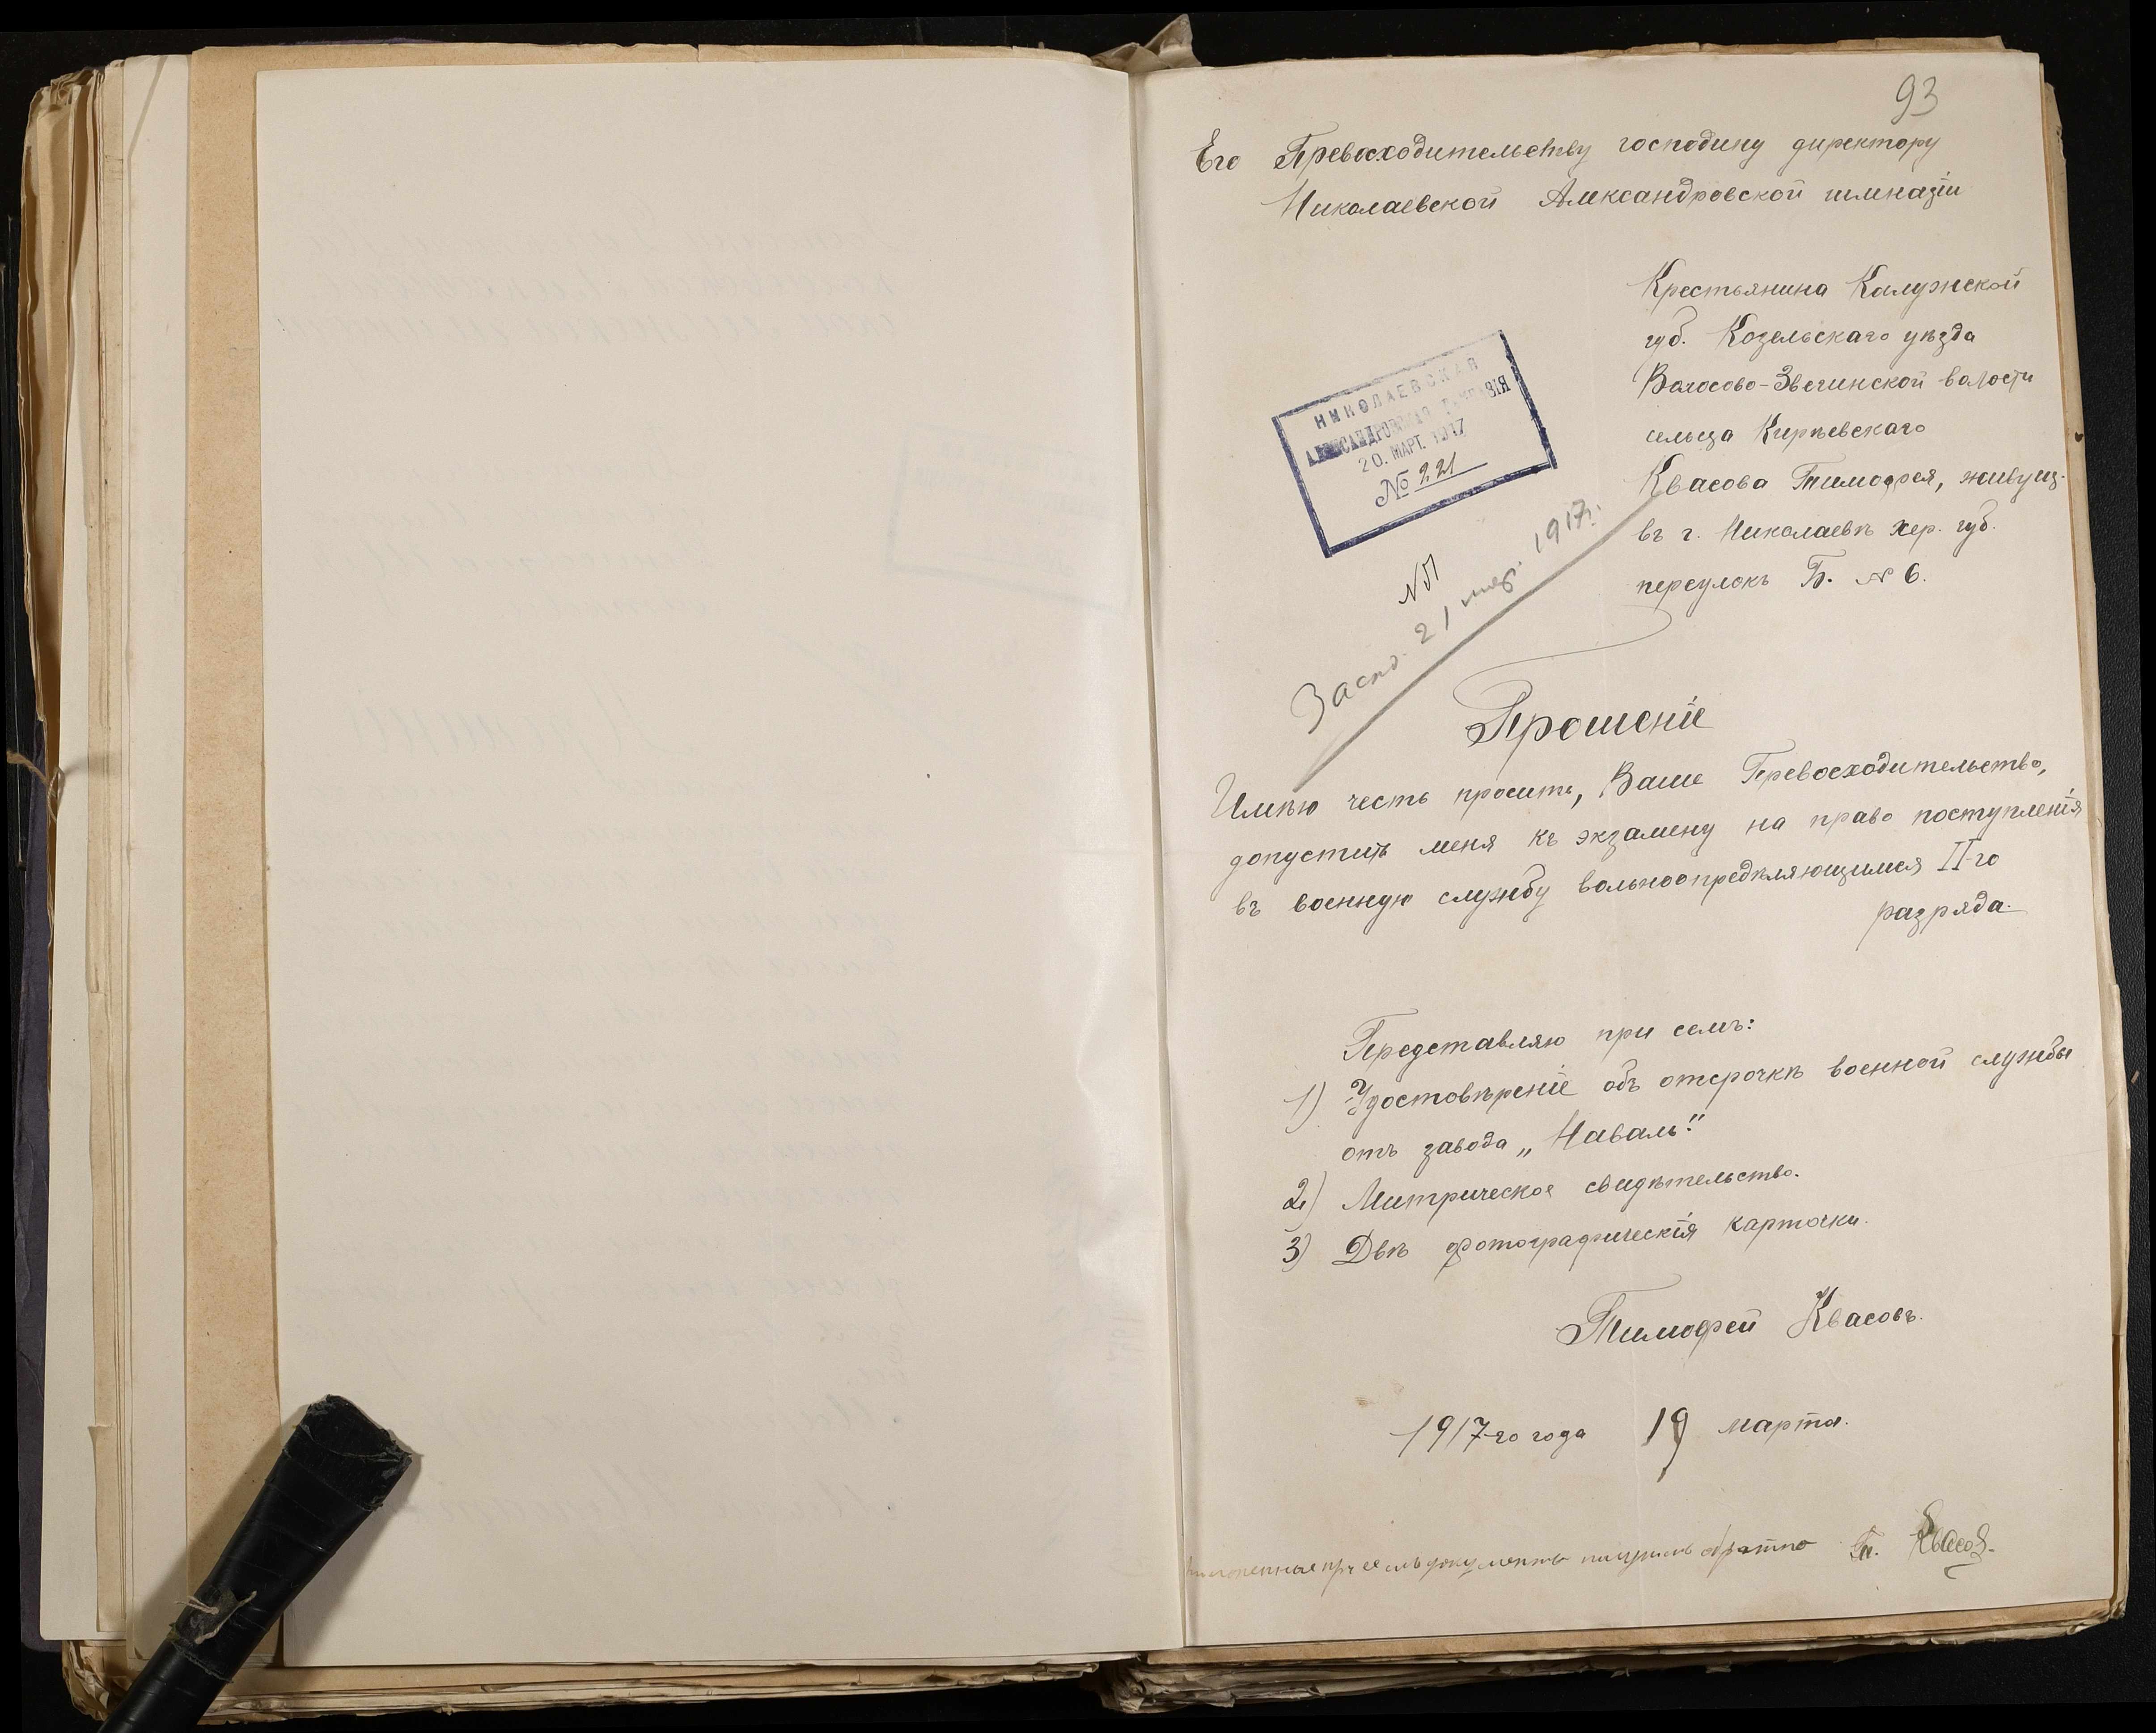 93
Его Превосходительству господину директору
Николаевской Александровской гимназіи
Крестьянина Калужской
губ. Козельскаго уѣзда
Волосово-Звегинской волости
сельца Кирѣевскаго
Квасова Тимофея, живущ.
въ г. Николаевѣ Хер. губ.
переулокъ Б. № 6.
НИКОЛАЕВСКАЯ
АЛЕКСАНДРОВСКАЯ ГИМНАЗІЯ
20. МАРТ. 1917
№ 221
21 мар. 1917г.
Прошеніе
Имѣю честь просить, Ваше Превосходительство,
допустить меня къ экзамену на право поступленія
въ военную службу вольноопредѣляющимся II-го
разряда.
Представляю при семъ:
1) Удостовѣреніе объ отсрочкѣ военной службы
отъ завода „Наваль".
2) Митрическое свидѣтельство.
3) Двѣ фотографическія карточки.
Тимофей Квасовъ.
1917-го года 19 марта.
приложенные при семъ документы получилъ обратно Т. Квасов.